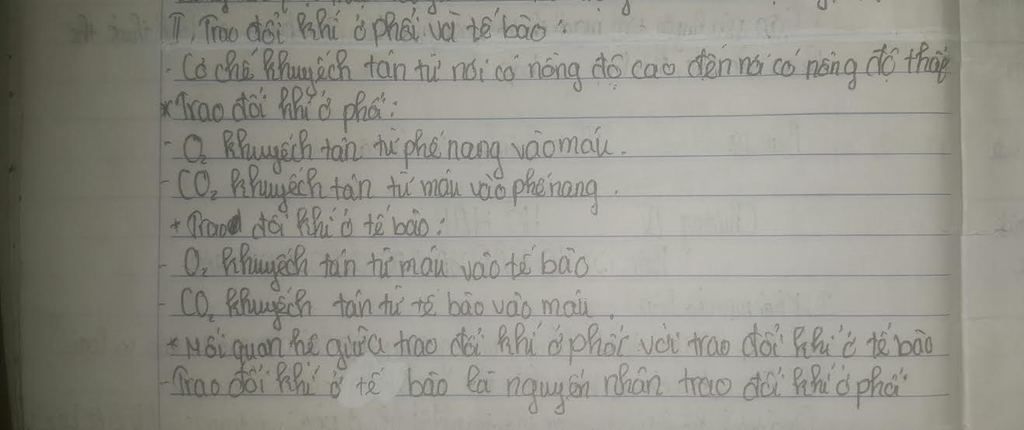 II, Trao đổi khí ở phổi và tế bào:
- Cơ chế khuyếch tán từ nơi có nồng độ cao đến nơi có nồng độ thấp
* Trao đổi khí ở phổi:
- O₂ khuyếch tán từ phế nang vào máu.
- CO₂ khuyếch tán từ máu vào phế nang.
* Trao đổi khí ở tế bào:
- O₂ khuyếch tán từ máu vào tế bào
- CO₂ khuyếch tán từ tế bào vào máu.
* Mối quan hệ giữa trao đổi khí ở phổi với trao đổi khí ở tế bào
- Trao đổi khí ở tế bào là nguyên nhân trao đổi khí ở phổi